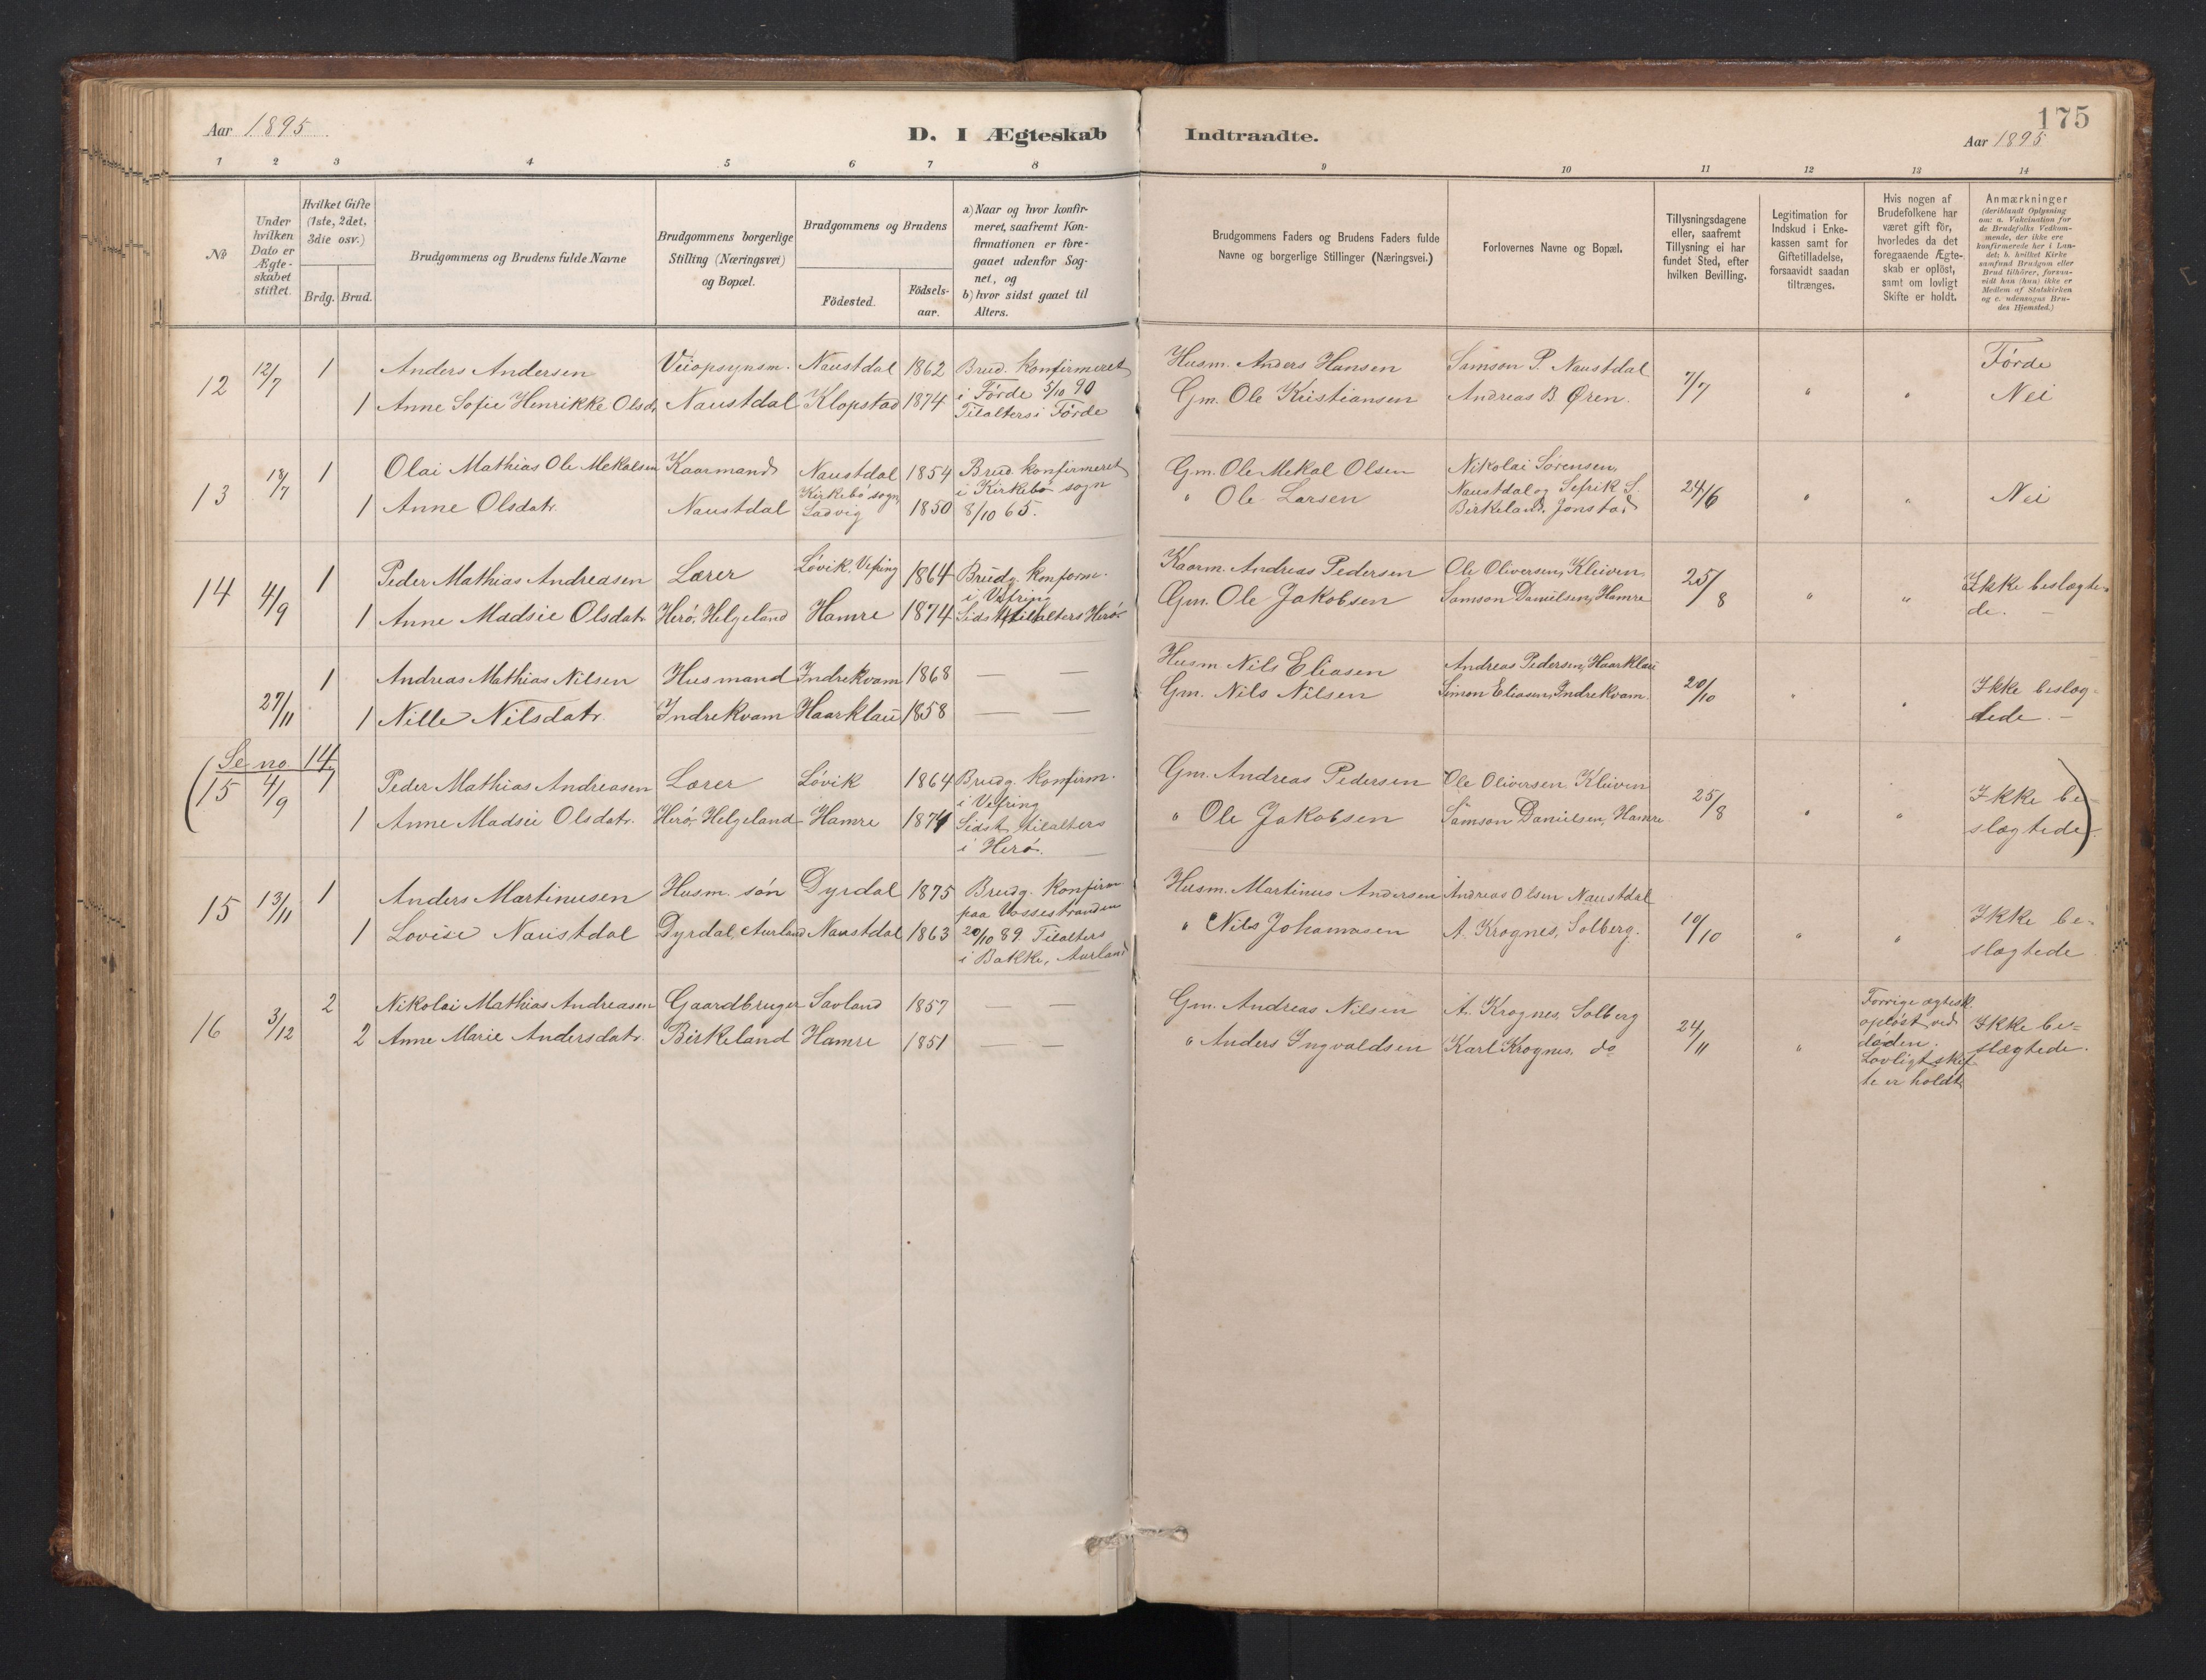 175
Aar 1895
D. I Ægteskab Indtraadte.
Aar 1895
1 2 3 4 5 6 7 8 9 10 11 12 13 14
No
Under hvilken Dato er Ægte-skabet stiftet.
Hvilket Gifte (1ste, 2det, 3die osv.)
Brdg. Brud.
Brudgommens og Brudens fulde Navne
Brudgommens borgerlige Stilling (Næringsvei) og Bopæl.
Brudgommens og Brudens
Födested.
Födsels-aar.
a) Naar og hvor konfir-meret, saafremt Kon-firmationen er fore-gaaet udenfor Sog-net, og
b) hvor sidst gaaet til Alters.
Brudgommens Faders og Brudens Faders fulde Navne og borgerlige Stillinger (Næringsvei.)
Forlovernes Navne og Bopæl.
Tillysningsdagene eller, saafremt Tillysning ei har fundet Sted, efter hvilken Bevilling.
Legitimation for Indskud i Enke-kassen samt for Giftetilladelse, forsaavidt saadan tiltrænges.
Hvis nogen af Brudefolkene har været gift för, hvorledes da det foregaaende Ægte-skab er oplöst, samt om lovligt Skifte er holdt.
Anmærkninger
(deriblandt Oplysning om: a. Vakcination for de Brudefolks Vedkom-mende, der ikke ere konfirmerede her i Lan-det; b. hvilket Kirke samfund Brudgom eller Brud tilhörer, forsaa-vidt han (hun) ikke er Medlem af Statskirken og c. udensogns Bru-des Hjemsted.)
12 12/7 1 Anders Andersen Veiopsynsm. Naustdal 1862 Brud. konfirmeret Husm. Anders Hansen Samson P. Naustdal 7/7 " " Förde
1 Anne Sofie Henrikke Olsdr. Naustdal Klopstad 1874 i Förde 5/10 90 Gm. Ole Kristiansen Andreas B. Øren. Nei
Tilalters i Förde
13 18/7 1 Olai Mathias Ole Mekalsen Kaarmand Naustdal 1854 Brud. konfirmeret Gm. Ole Mekal Olsen Nikolai Sörensen, 24/6 " " Nei
Kirkebö sogn i Kirkebö sogn Naustdal og Sefrik S.
1 Anne Olsdatr. Naustdal Ladvig 1850 8/10 65. " Ole Larsen Birkeland, Jonstad
14 4/9 1 Peder Mathias Andreasen Lærer Lövik, Vefring 1864 Brudg. konform. Kaarm. Andreas Pedersen Ole Oliversen, Kleiven 25/8 " " Ikke beslægte-
i Vefring
1 Anne Madsie Olsdatr. Herö, Helgeland Hamre 1874 Sidst tilalters Herö. Gm. Ole Jakobsen Samson Danielsen, Hamre de. —
27/11 1 Andreas Mathias Nilsen Husmand Indrekvam 1868 — — Husm. Nils Eliasen Andreas Pedersen, Haarklau 20/10 " " Ikke beslæg-
1 Nille Nilsdatr. Indrekvam Haarklau 1858 — — Gm. Nils Nilsen Simon Eliasen, Indrekvam. tede. —
Se no 14.
(15 4/9 1 Peder Mathias Andreasen Lærer Lövik 1864 Brudg. konfirm. Gm. Andreas Pedersen Ole Oliversen, Kleiven 25/8 " " Ikke be-
i Vefring
1 Anne Madsie Olsdatr. Herö, Helgeland Hamre 1874 Sidst tilalters " Ole Jakobsen Samson Danielsen, Hamre slægtede)
i Herö.
15 13/11 1 Anders Martinusen Husm. sön Dyrdal 1875 Brudg. konfirm Husm. Martinus Andersen Andreas Olsen Naustdal 10/10 " " Ikke be-
paa Vossestranden
1 Lovise Naustdal Dyrdal, Aurland Naustdal 1863 20/10 89. Tilalters " Nils Johannesen A. Krognes, Solberg. slægtede
i Bakke, Aurland
16 3/12 2 Nikolai Mathias Andreasen Gaardbruger Savland 1857 — — Gm. Andreas Nilsen A. Krognes, Solberg 24/11 " Forrige ægtesk. oplöst ved döden. Lovligt skif-te er holdt Ikke be-
2 Anne Marie Andersdatr. Birkeland Hamre 1851 — — " Anders Ingvaldsen Karl Krognes, do slægtede.